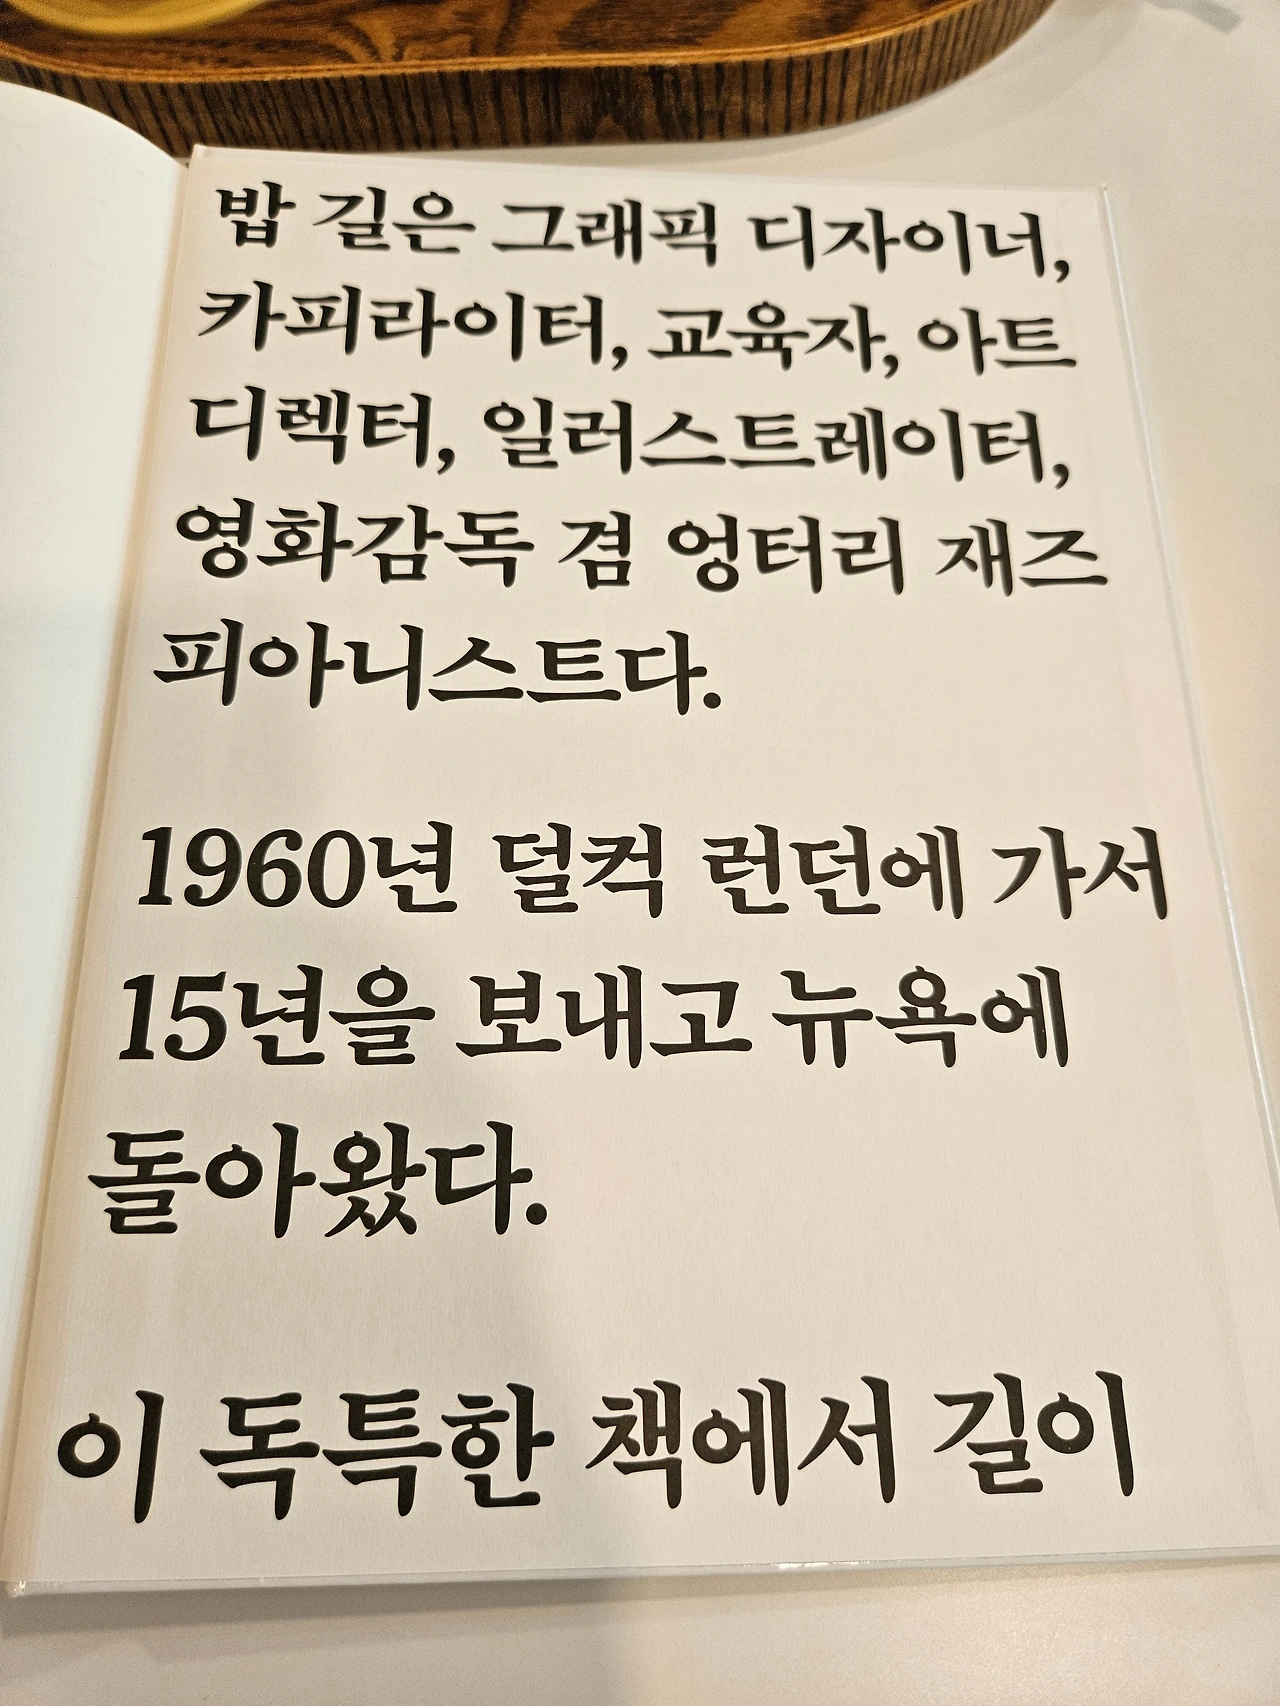 밥 길은 그래픽 디자이너,
카피라이터, 교육자, 아트
디렉터, 일러스트레이터,
영화감독 겸 엉터리 재즈
피아니스트다.
1960년 덜컥 런던에 가서
15년을 보내고 뉴욕에
돌아왔다.
이 독특한 책에서 길이